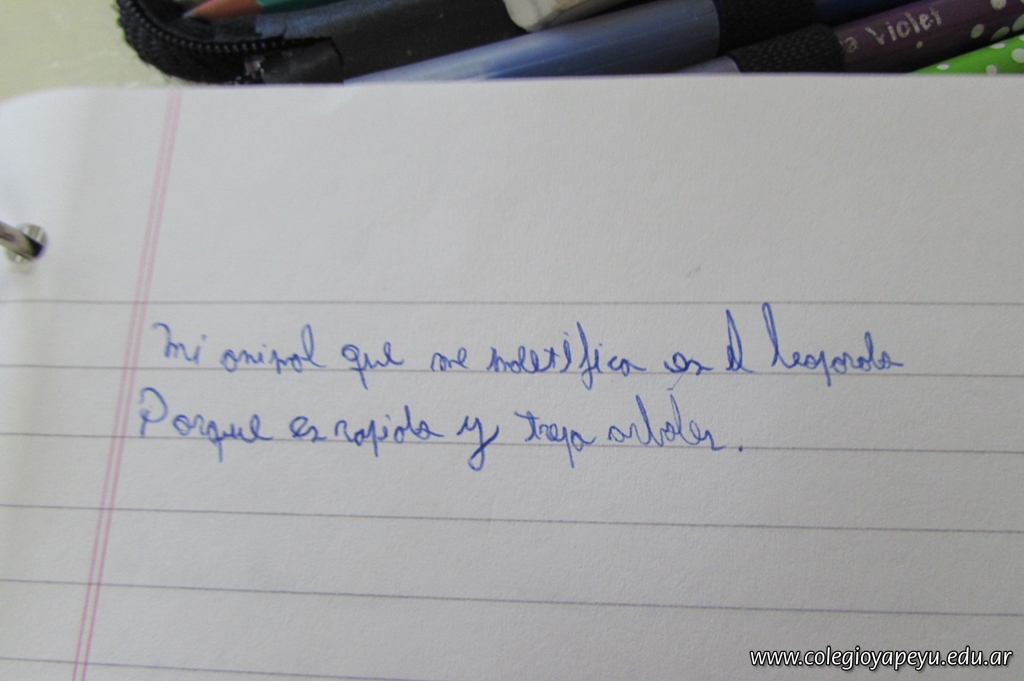 a Violet
Mi animal que me indetifica es el leopardo
Porque es rapido y trepa arboles.
www.colegioyapeyu.edu.ar